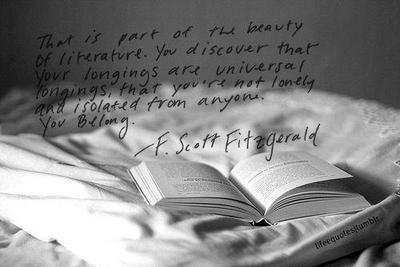 That is part of the beauty
of literature. You discover that
your longings are universal
longings, that you're not lonely
and isolated from anyone.
You Belong.
-F. Scott Fitzgerald
lifeequotes|tumblr